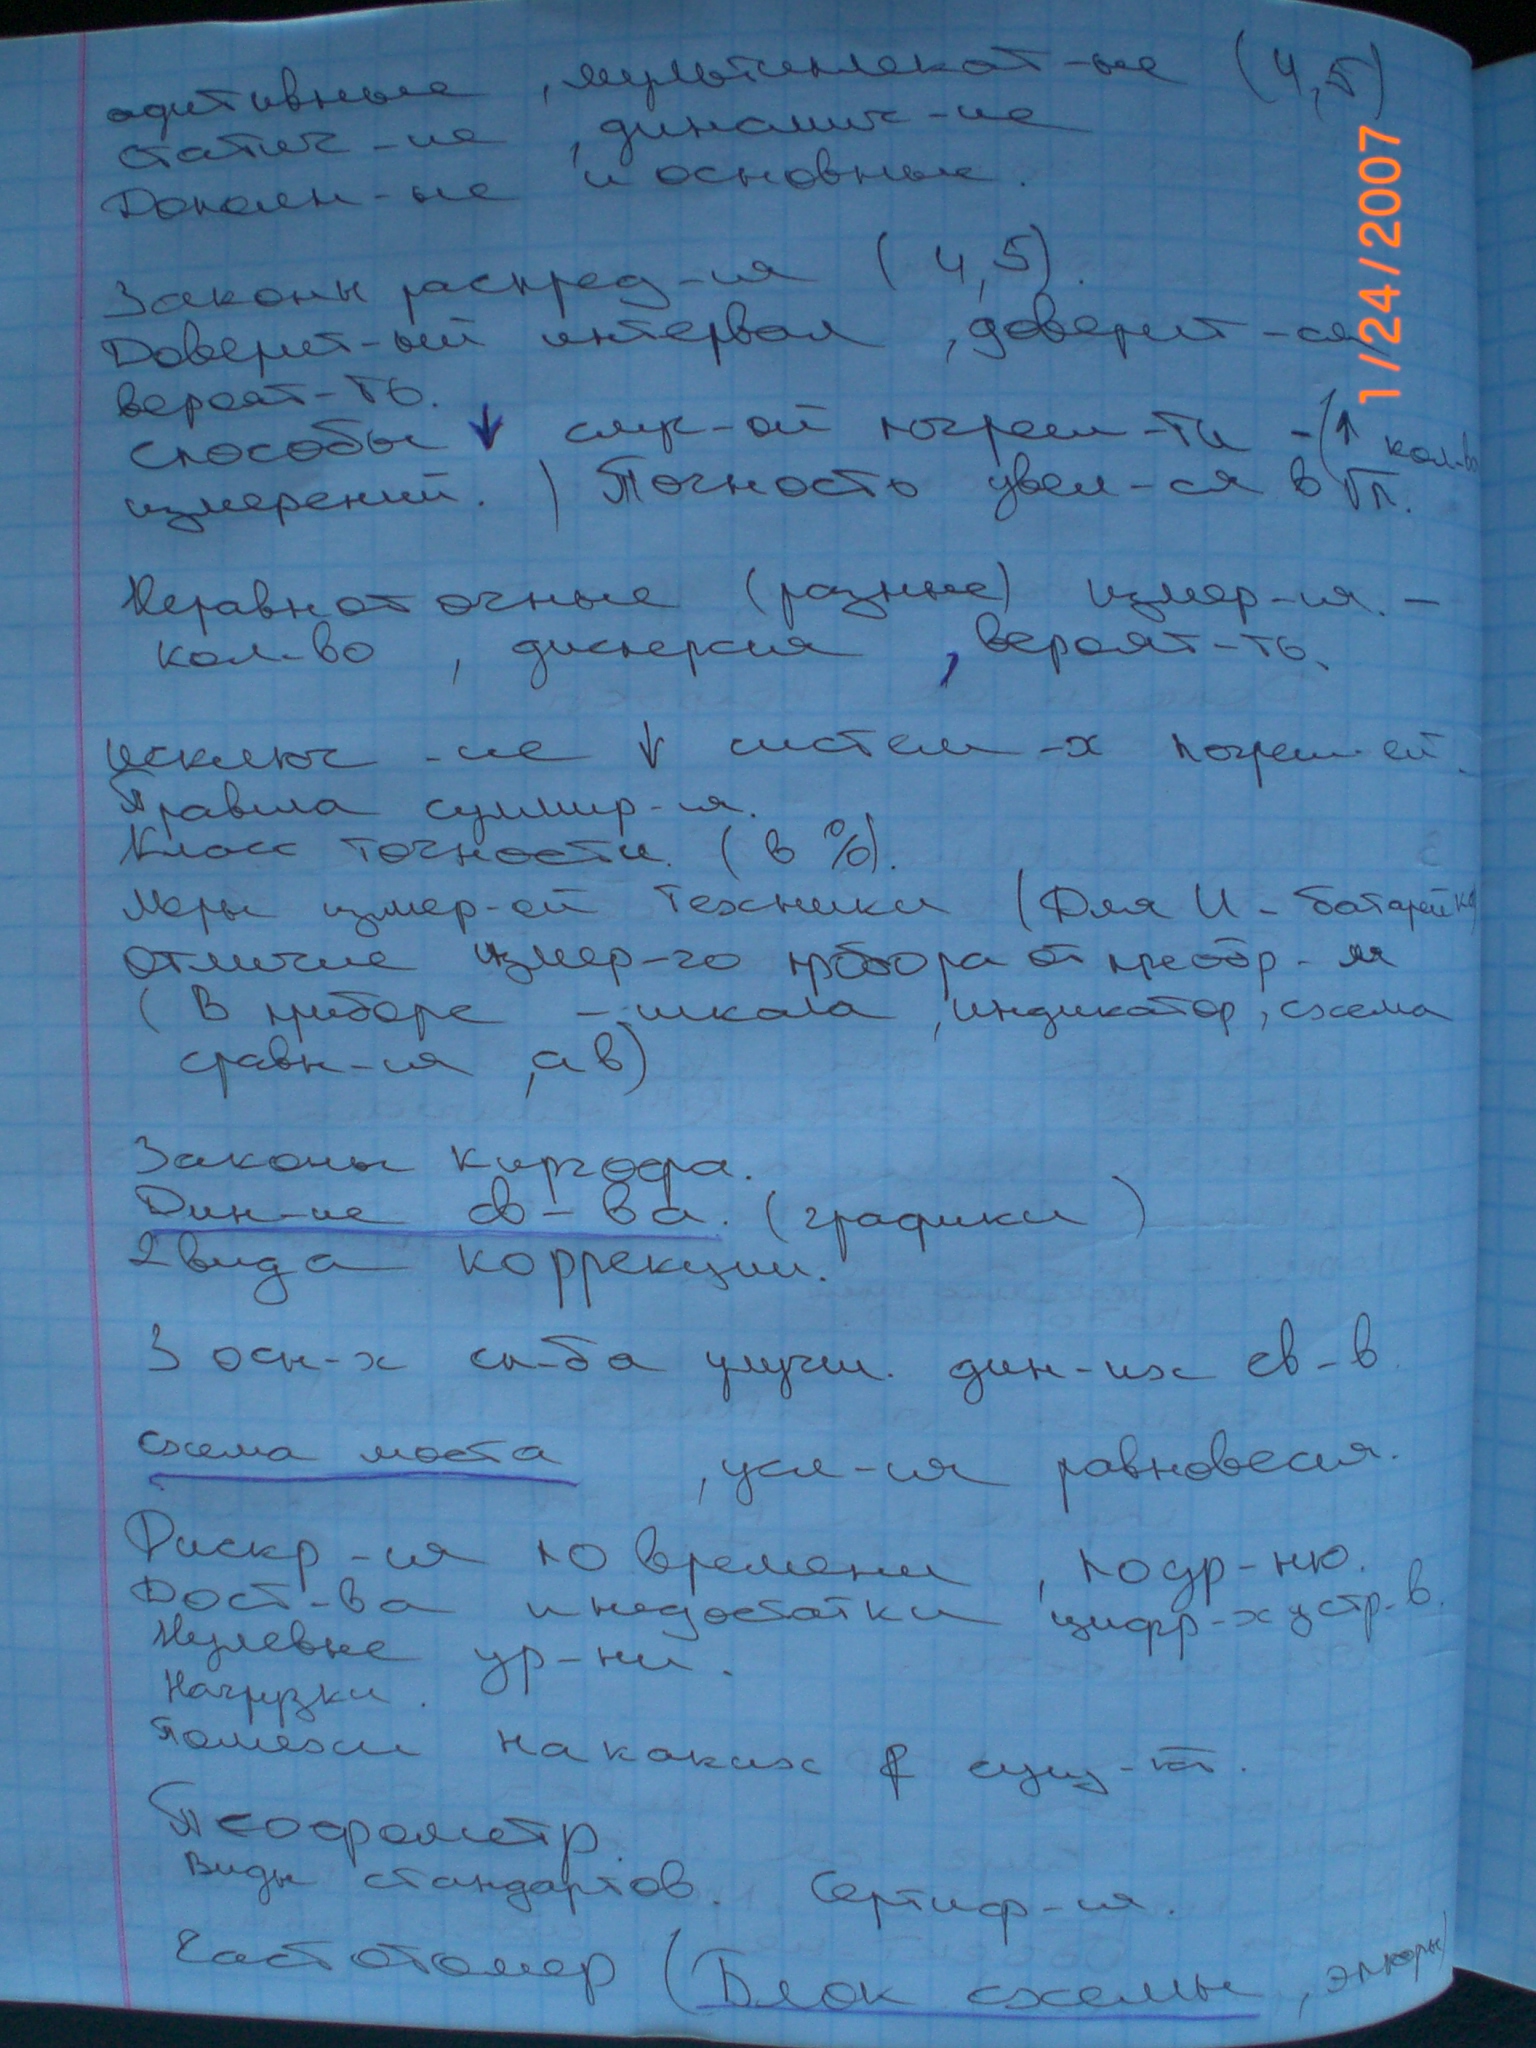 адитивные, мультипликат-ые (4,5)
статич-ие, динамич-ие
Дополн-ые и основные.
Законы распред-ия (4,5).
Доверит-ый интервал, доверит-ая
вероят-ть.
способы ↓ случ-ой погреш-ти - (↑ кол-во
измерений.) Точность увел-ся в √n.
Неравноточные (разные) измер-ия. –
кол-во, дисперсия, вероят-ть.
исключ-ие ↓ систем-х погреш-ей.
Правила суммир-ия.
Класс точности. (в %).
Меры измер-ой техники (Для U - батарейка)
отличие измер-го прибора от преобр-ля
(В приборе - шкала, индикатор, схема
сравн-ия, а в)
Законы Кирхофа.
Дин-ие св-ва. (графики)
2 вида коррекции.
3 осн-х сп-ба улучш. дин-их св-в.
схема моста, усл-ия равновесия.
Дискр-ия по времени, по ур-ню.
Дост-ва и недостатки цифр-х устр-в.
Нулевые ур-ни.
Нагрузки.
помехи на каких f сущ-ют.
Псофометр.
Виды стандартов. Сертиф-ия.
Частотомер (Блок схемы, эпюры)
1/24/2007